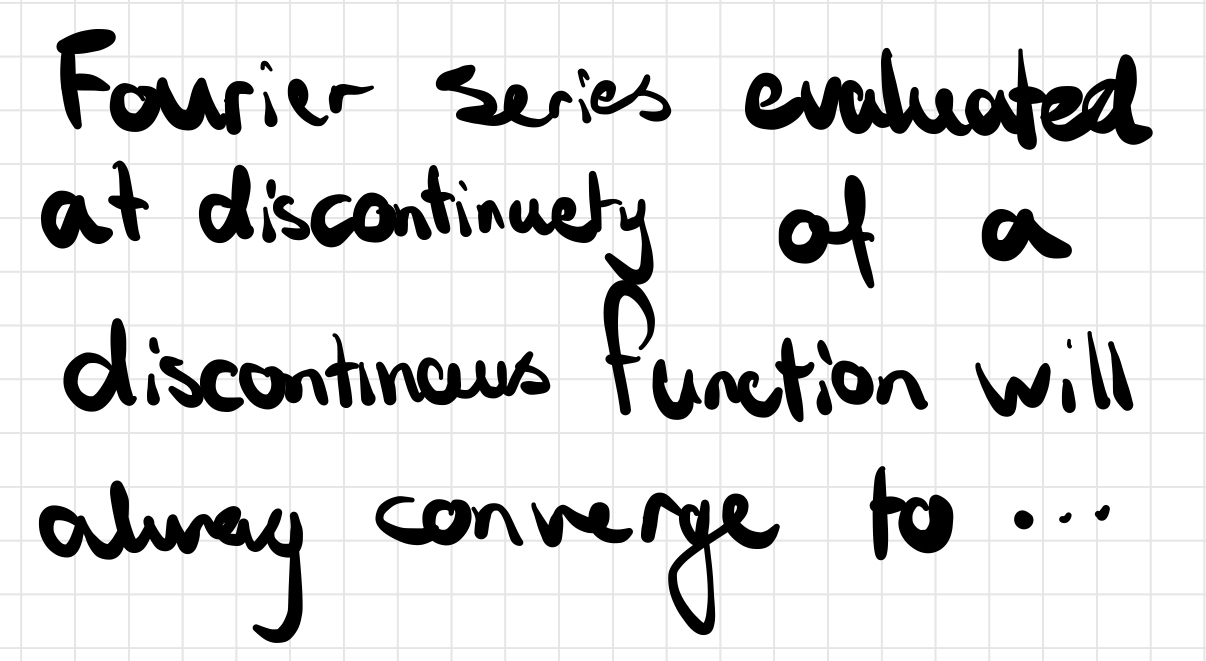 Fourier series evaluated
at discontinuety of a
discontinous function will
alway converge to ...